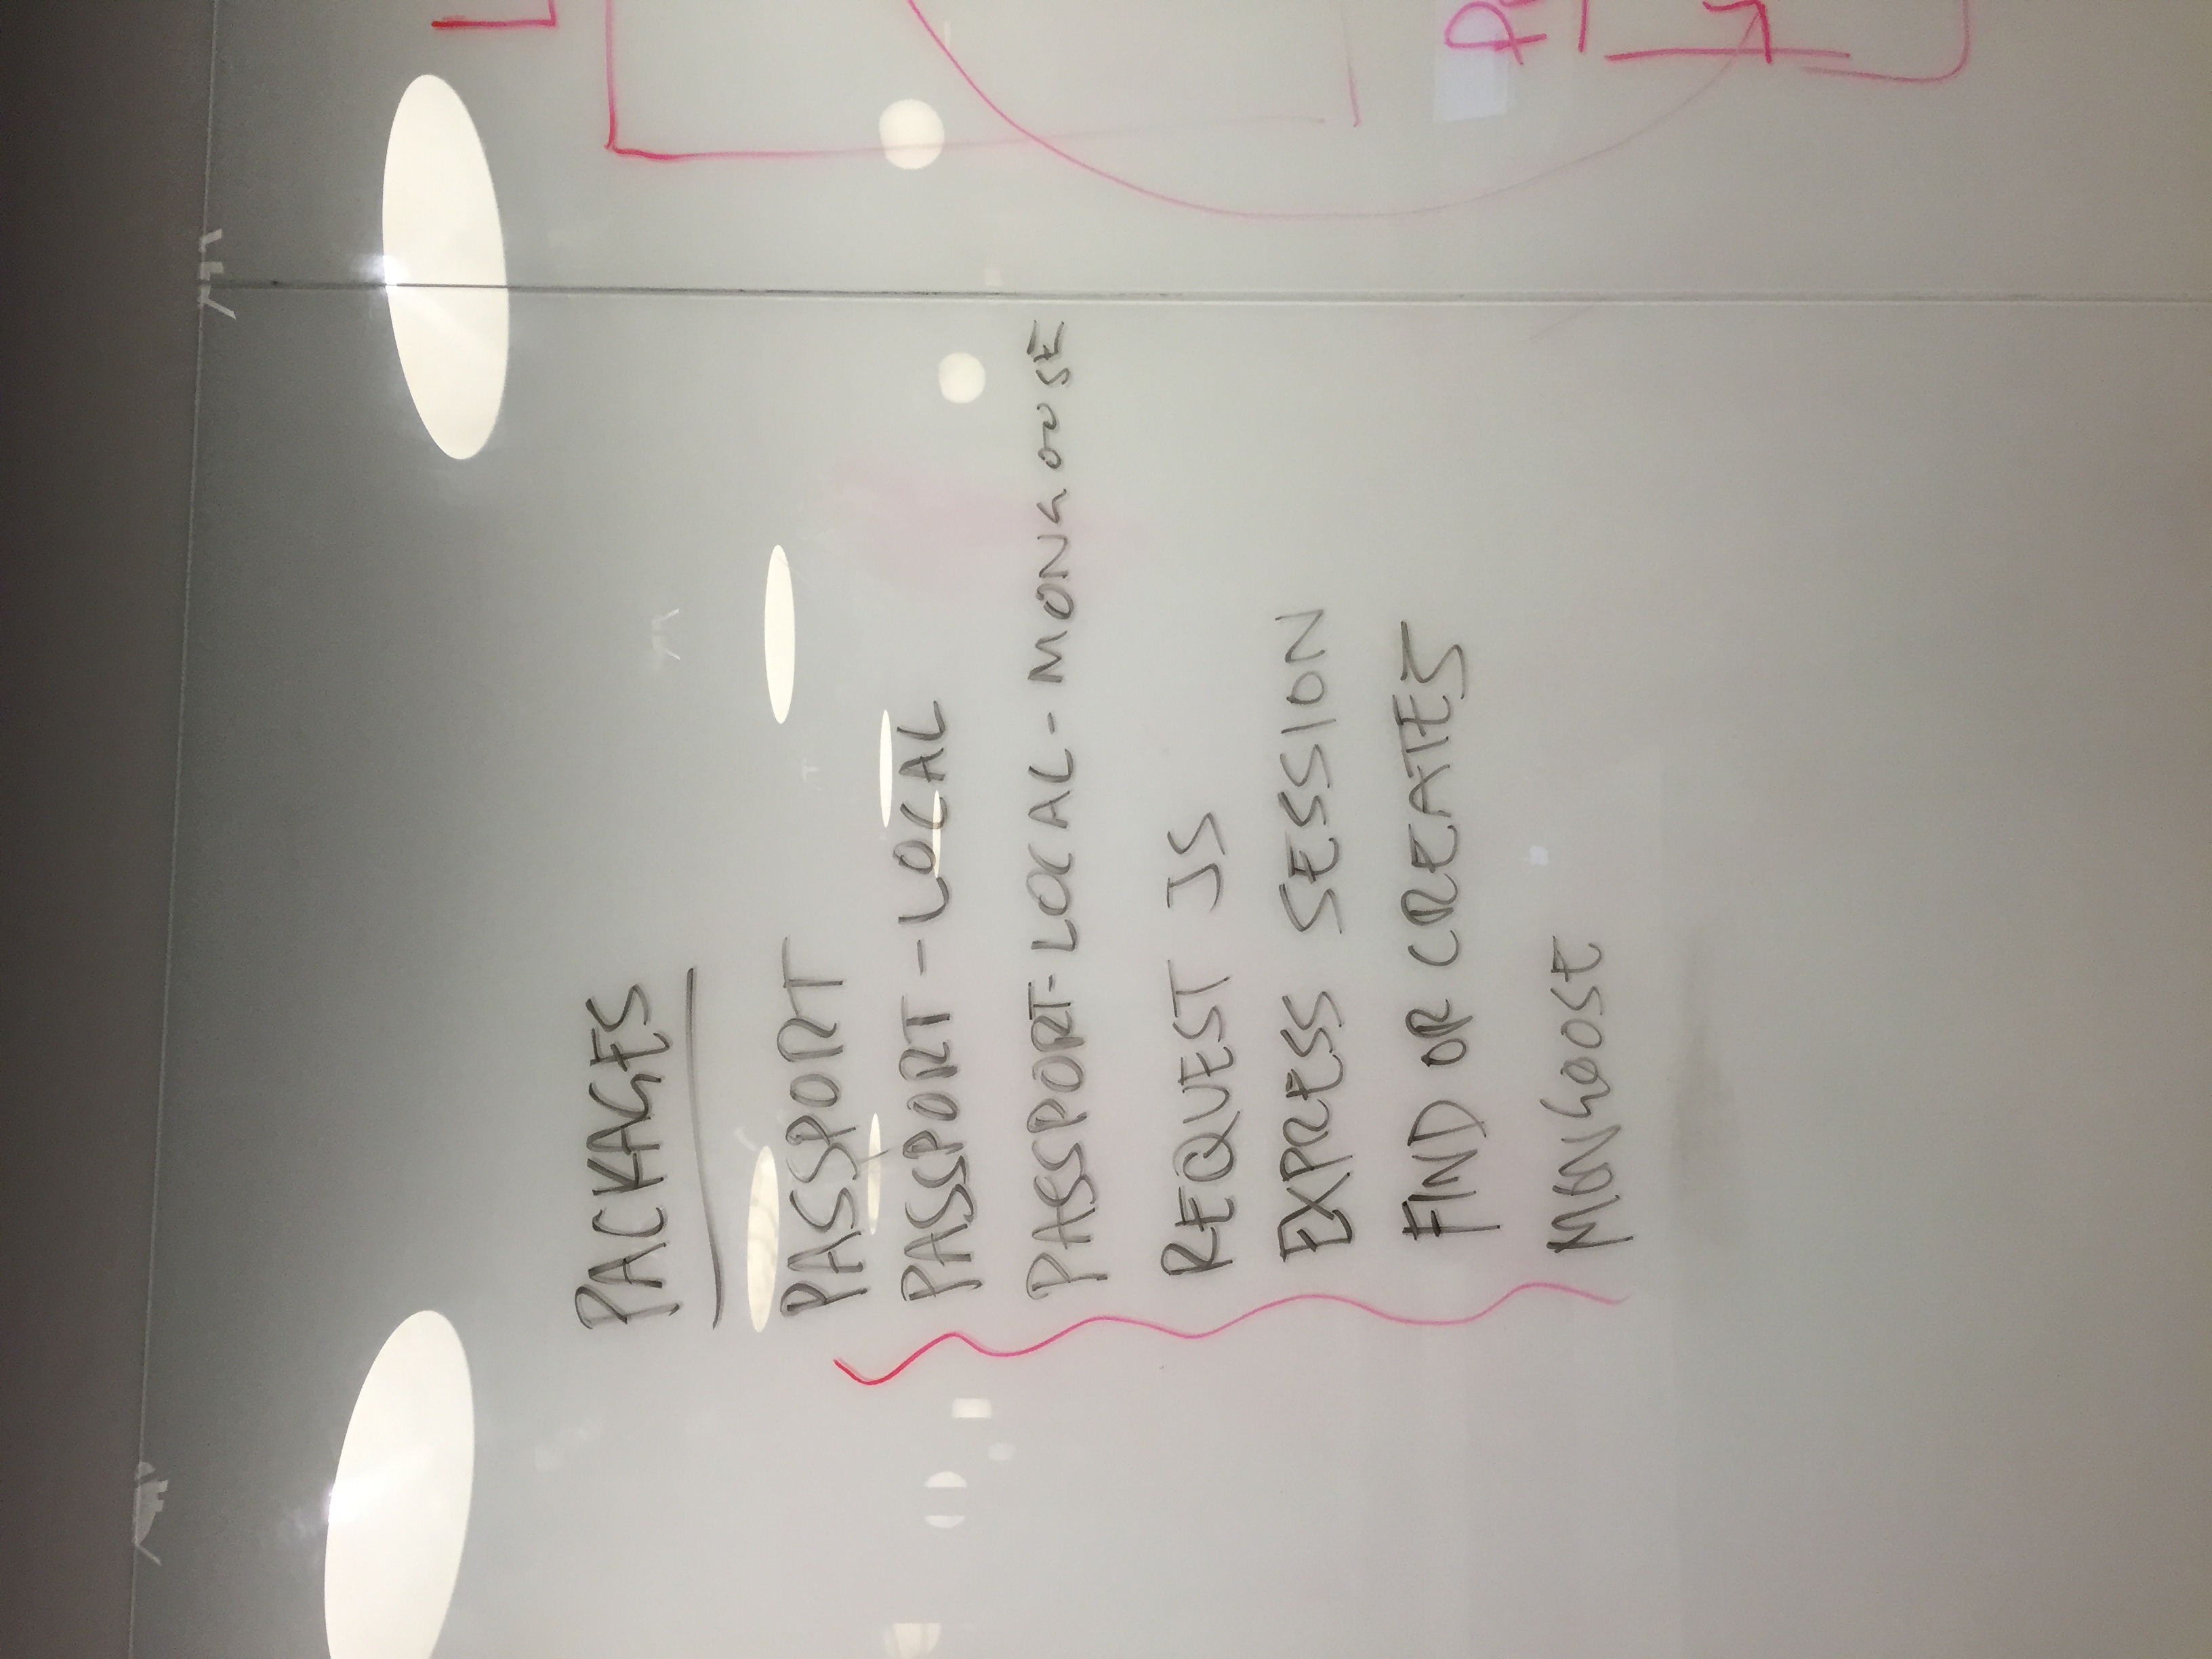 PACKAGES
PASSPORT
PASSPORT-LOCAL
PASSPORT-LOCAL-MONGOOSE
REQUEST JS
EXPRESS SESSION
FIND OR CREATES
MONGOOSE